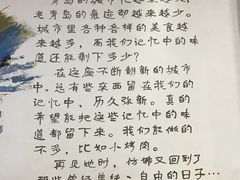 老青岛的痕迹却越来越少。
城市里各种各样的美食越
来越多，而我们记忆中的味
道还能剩下多少？
在这座不断翻新的城市
中，总有些东西留在我们的
记忆中，历久弥新。真的
希望能把这些记忆中的味
道都留下来。我们能做的
不多，比如小烤肉。
再见她时，仿佛又回到了
那些曾经单纯、自由的日子…